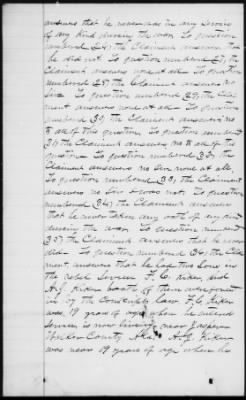 answers that he never was in any service
of any kind during the war. To question
numbered (26) the Claimant answers that
he did not. To question numbered (27) the
Claimant answers none at all. To question
numbered (28) the Claimant answers no
Sir. To question numbered (29) the Clai
ment answers none at all. To question
numbered (30) the Claimant answers no
to all of this question. To question numbered
(31) the Claimant answers no to all of this
question. To question numbered (32) the
Claimant answers no Sir none at all.
To question numbered (33) the Claimant
answers no Sir I was not. To question
numbered (34) the Claimant answers
that he never taken any oath of any kind
during the war. To question numbered
(35) the Claimant answers that he never
did. To question numbered (36) the Clai
ment answers that he had two Sons in
the rebel Service F. C. Kiker and
A. J. Kiker both of them were forced
in by the Conscript law F. C. Kiker
was 19 years of age when he entered
Service is now living near Jasper
Walker County Ala. A. J. Kiker
was near 19 years of age when he